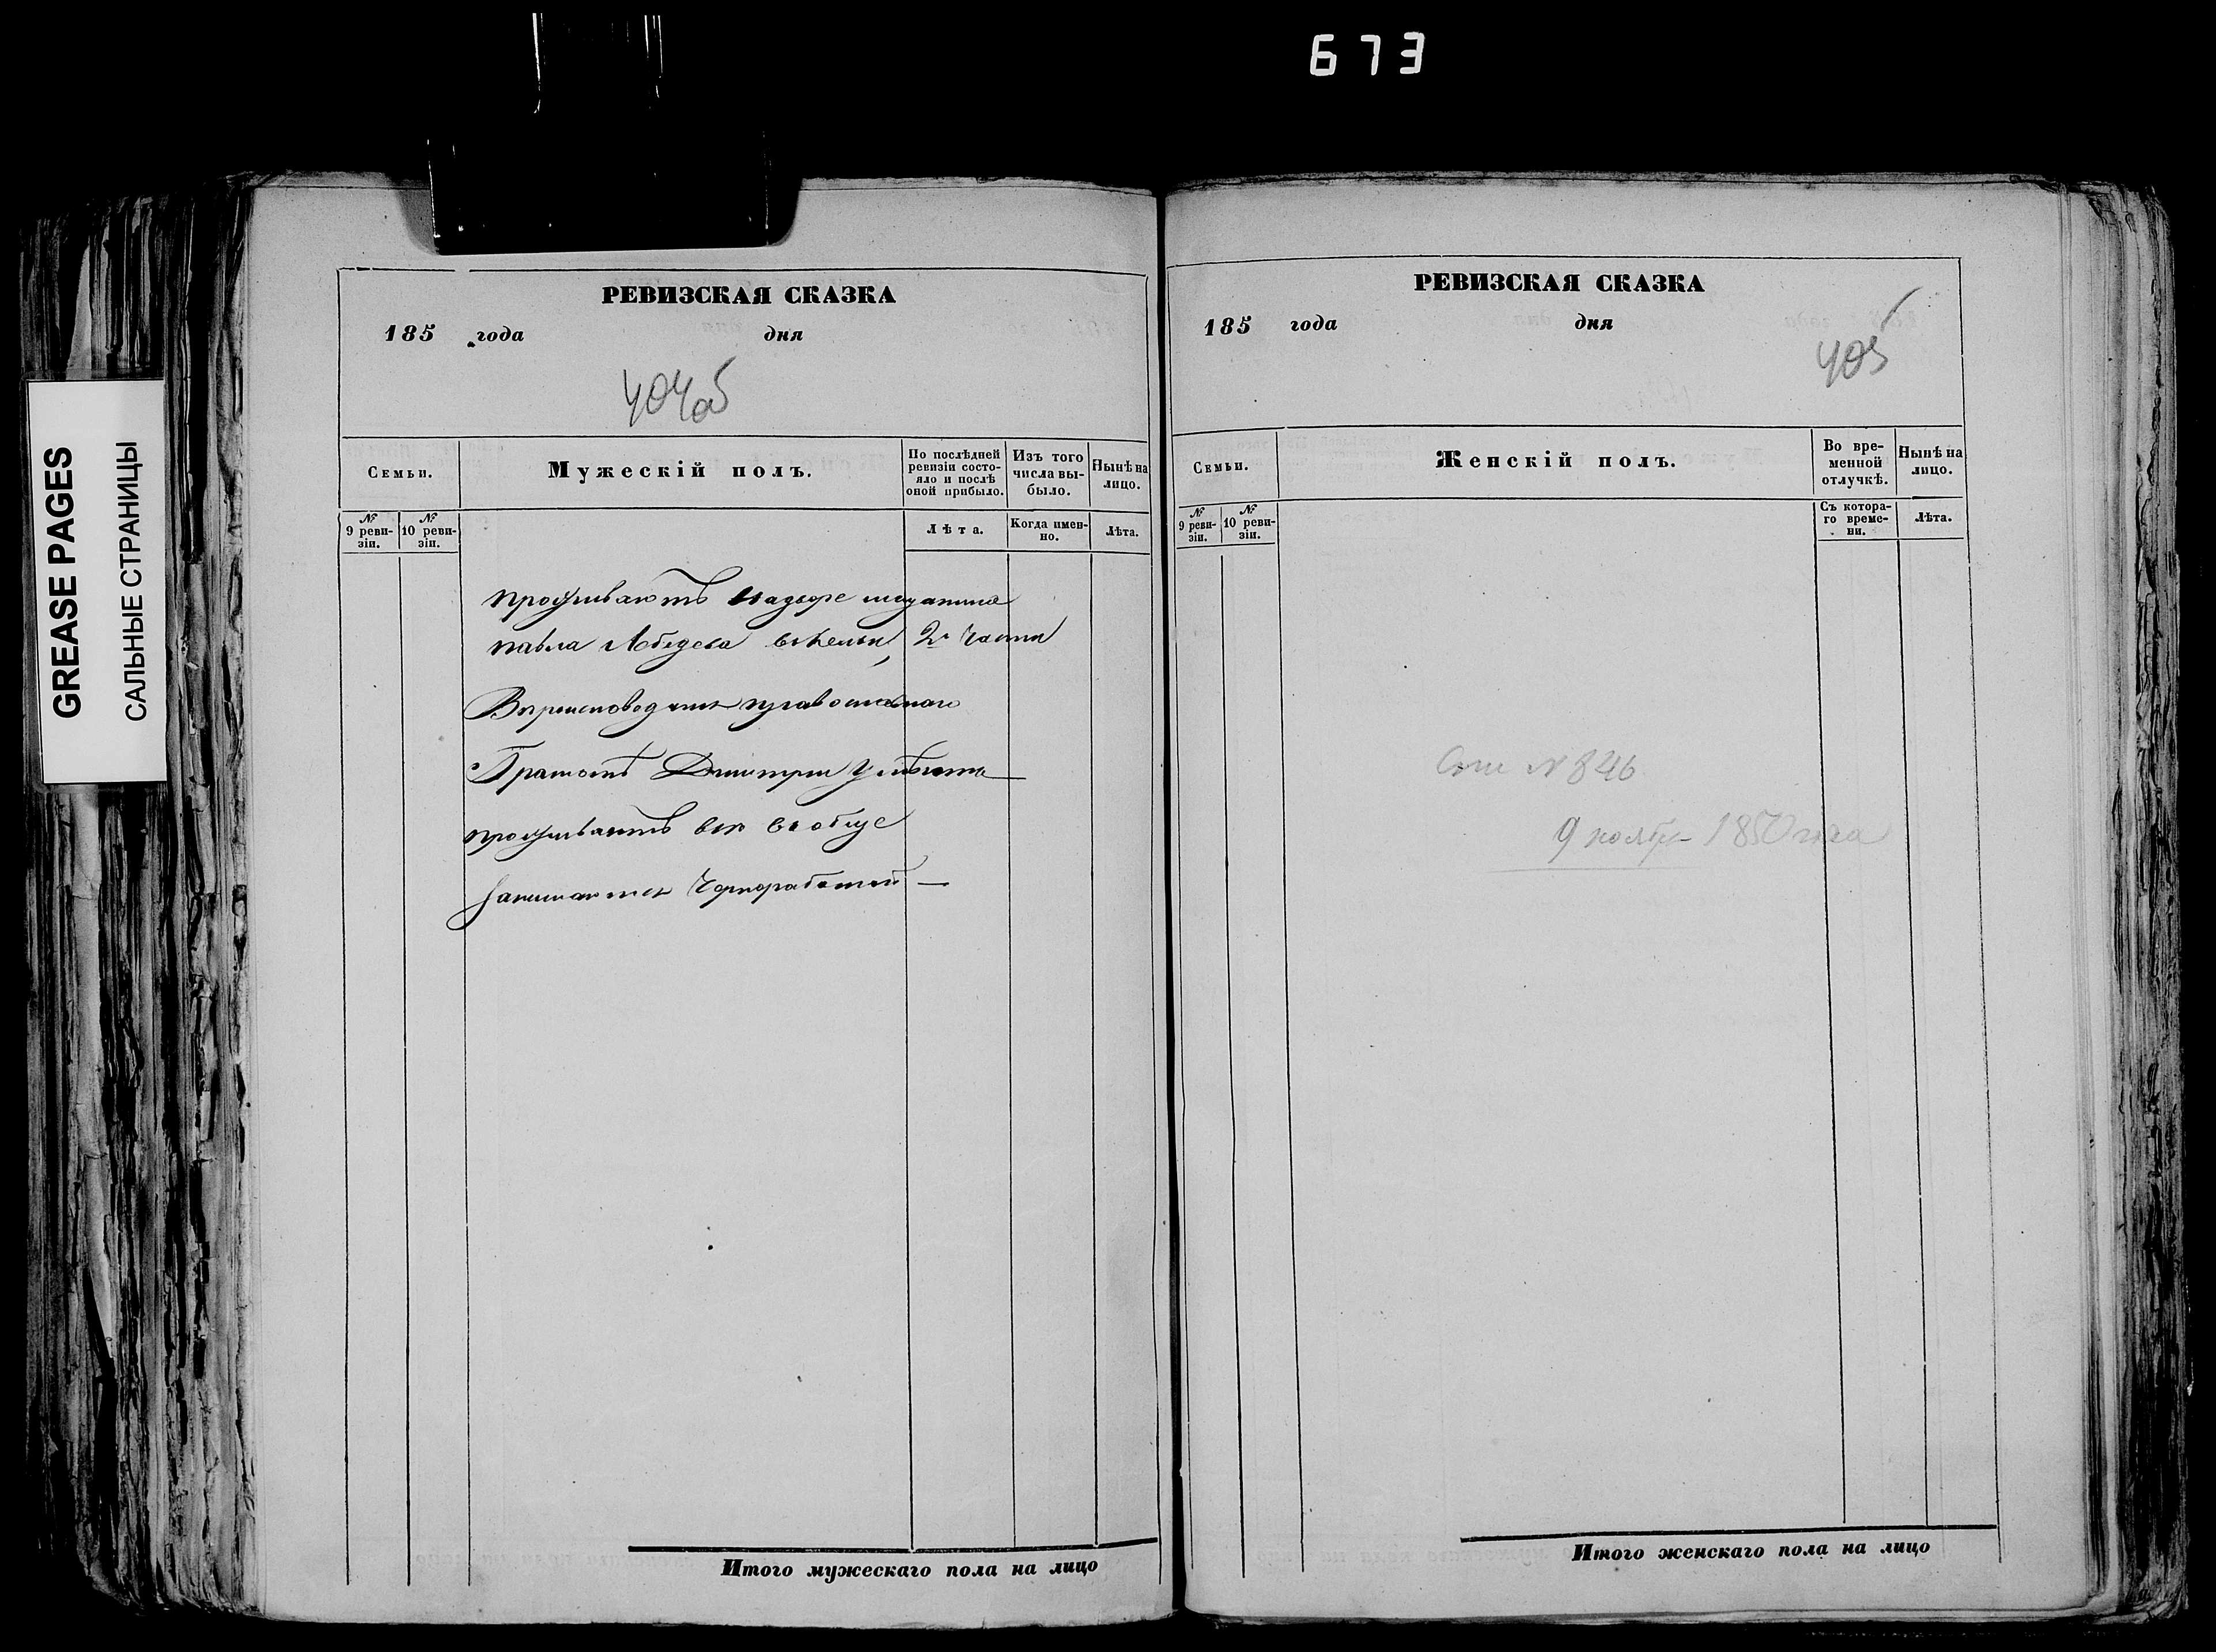 673
GREASE PAGES
САЛЬНЫЕ СТРАНИЦЫ
РЕВИЗСКАЯ СКАЗКА
185 года дня
404об
Семьи.
Мужескій полъ.
По послѣдней ревизіи состояло и послѣ оной прибыло.
Изъ того числа выбыло.
Нынѣ на лицо.
№ 9 ревизіи.
№ 10 ревизіи.
Лѣта.
Когда именно.
Лѣта.
проживаютъ надворе мещанина
павла Лебедева 2й части
Вероисповедания православнаго
Грамотѣ Дмитрии
проживаютъ все вообще
Занимаются Чорноработай —
Итого мужескаго пола на лицо
РЕВИЗСКАЯ СКАЗКА
185 года дня
405
Семьи.
Женскій полъ.
Во временной отлучкѣ.
Нынѣ на лицо.
№ 9 ревизіи.
№ 10 ревизіи.
Съ котораго времени.
Лѣта.
№ 846
9 ноября 1850 года
Итого женскаго пола на лицо